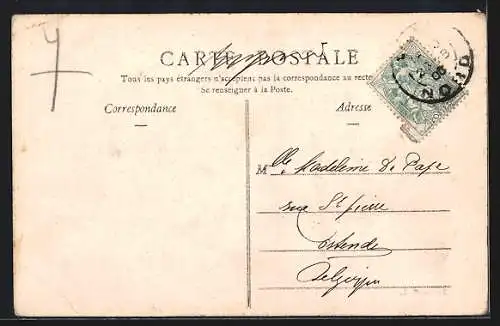 4
CARTE POSTALE
Tous les pays étrangers n'acceptent pas la correspondance au recto
Se renseigner à la Poste.
Correspondance
Adresse
NORD
Mlle Madeleine De Pape
rue St pierre
Ostende
Belgique